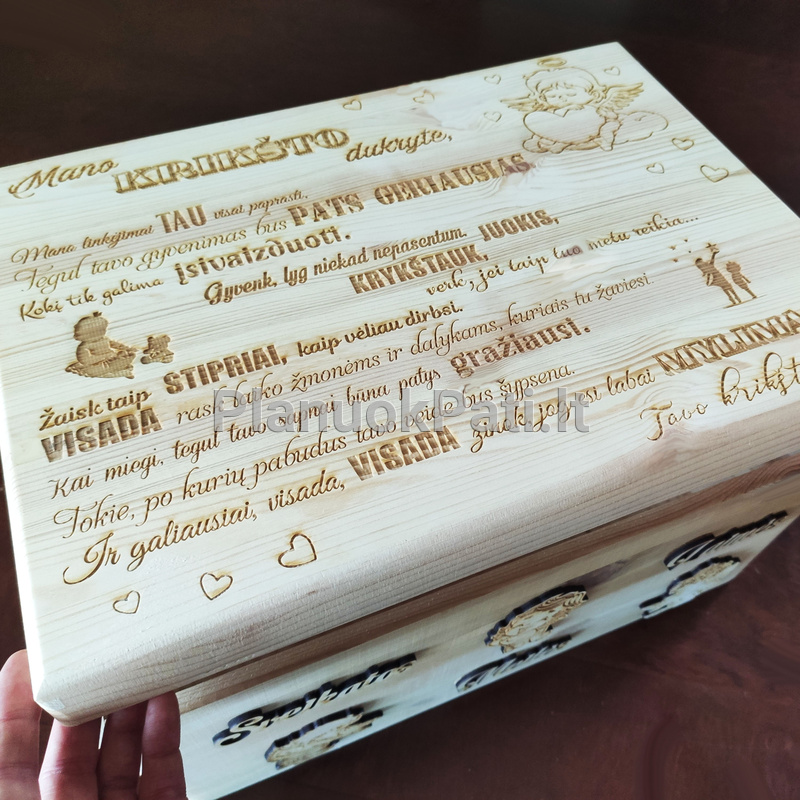 Mano KRIKŠTO dukryte,
Mano linkėjimai TAU visai paprasti.
Tegul tavo gyvenimas bus PATS GERIAUSIAS,
Kokį tik galima įsivaizduoti.
Gyvenk, lyg niekad nepasentum.
KRYKŠTAUK, JUOKIS,
verk, jei taip tuo metu reikia...
Žaisk taip STIPRIAI, kaip vėliau dirbsi.
VISADA rask laiko žmonėms ir dalykams, kuriais tu žaviesi
Kai miegi, tegul tavo sapnai būna patys gražiausi.
Tokie, po kurių pabudus tavo veide bus šypsena.
Ir galiausiai, visada, VISADA žinok jog esi labai MYLIMA
Tavo krikšt
PlanuokPati.lt
Sveikatos